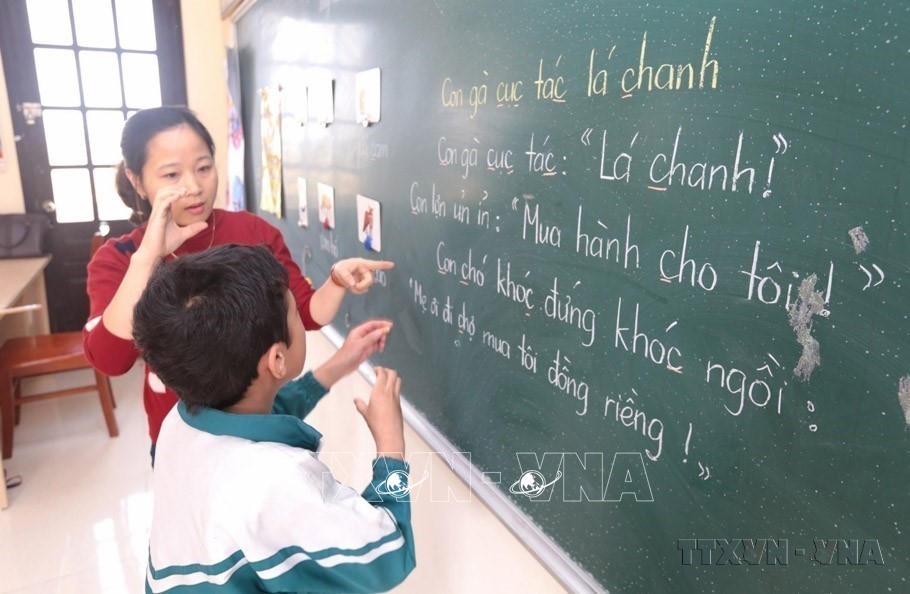 Con gà cục tác lá chanh
Con gà cục tác: "Lá chanh!"
Con lợn ủn ỉn: "Mua hành cho tôi!"
Con chó khóc đứng khóc ngồi:
"Mẹ ơi đi chợ mua tôi đồng riềng!"
TTXVN-VNA
TTXVN-VNA